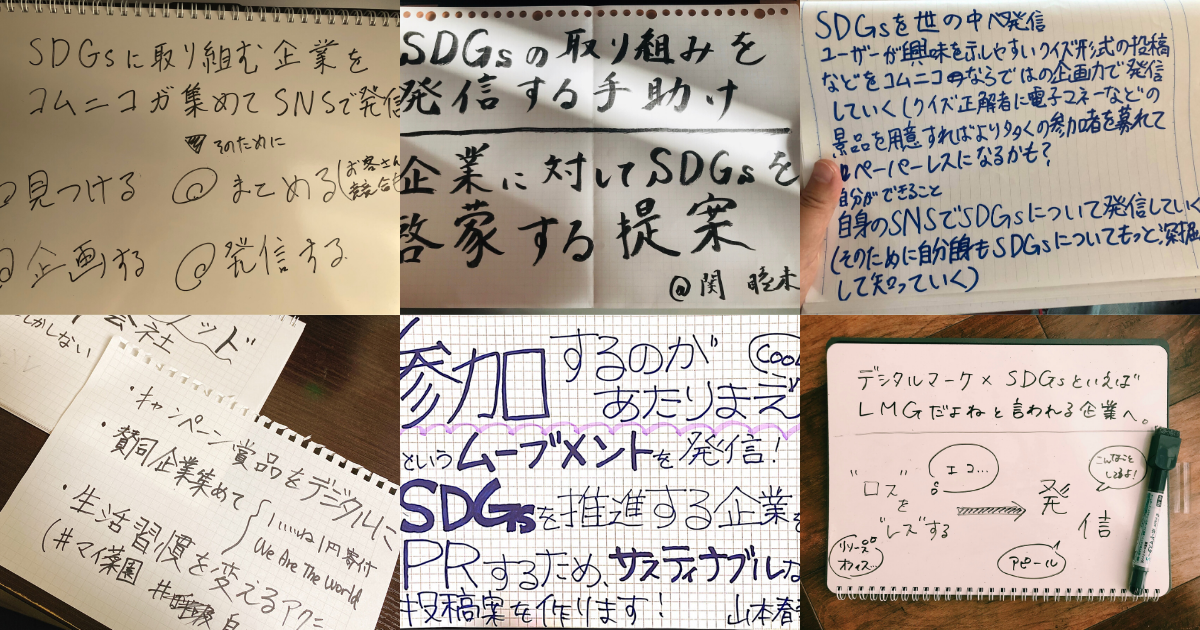 SDGsに取り組む企業を
コムニコが集めてSNSで発信
そのために
@見つける @まとめる(お客さん
競合も
@企画する @発信する
SDGsの取り組みを
発信する手助け
企業に対してSDGsを
啓蒙する提案
@関
SDGsを世の中へ発信
ユーザーが興味を示しやすいクイズ形式の投稿
などをコムニコならではの企画力で発信
していく(クイズ正解者に電子マネーなどの
景品を用意すればより多くの参加者を募れて
ペーパーレスになるかも?
自分ができること
自身のSNSでSDGsについて発信していく
(そのために自分自身もSDGsについてもっと深掘
して知っていく)
会社
しかしない
・キャンペーン賞品をデジタルに
・賛同企業集めて
いいね1円寄付
We Are The World
・生活習慣を変えるアクニ
(#マイ薬園
参加するのが
あたりまえ
というムーブメントを発信!
SDGsを推進する企業を
PRするため、サスティナブルな
投稿案を作ります!
山本春
デジタルマーケ×SDGsといえば
LMGだよねと言われる企業へ。
"ロス"を
"レス"する
エコ...
発信
こんなこと
してるよ!
アピール
リソース
オフィス...